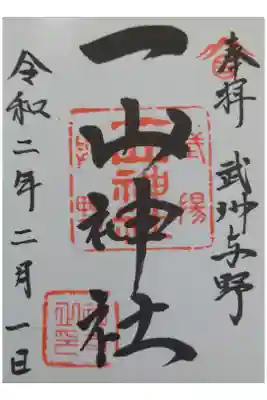 奉拝 武州与野
一山神社
令和二年二月一日